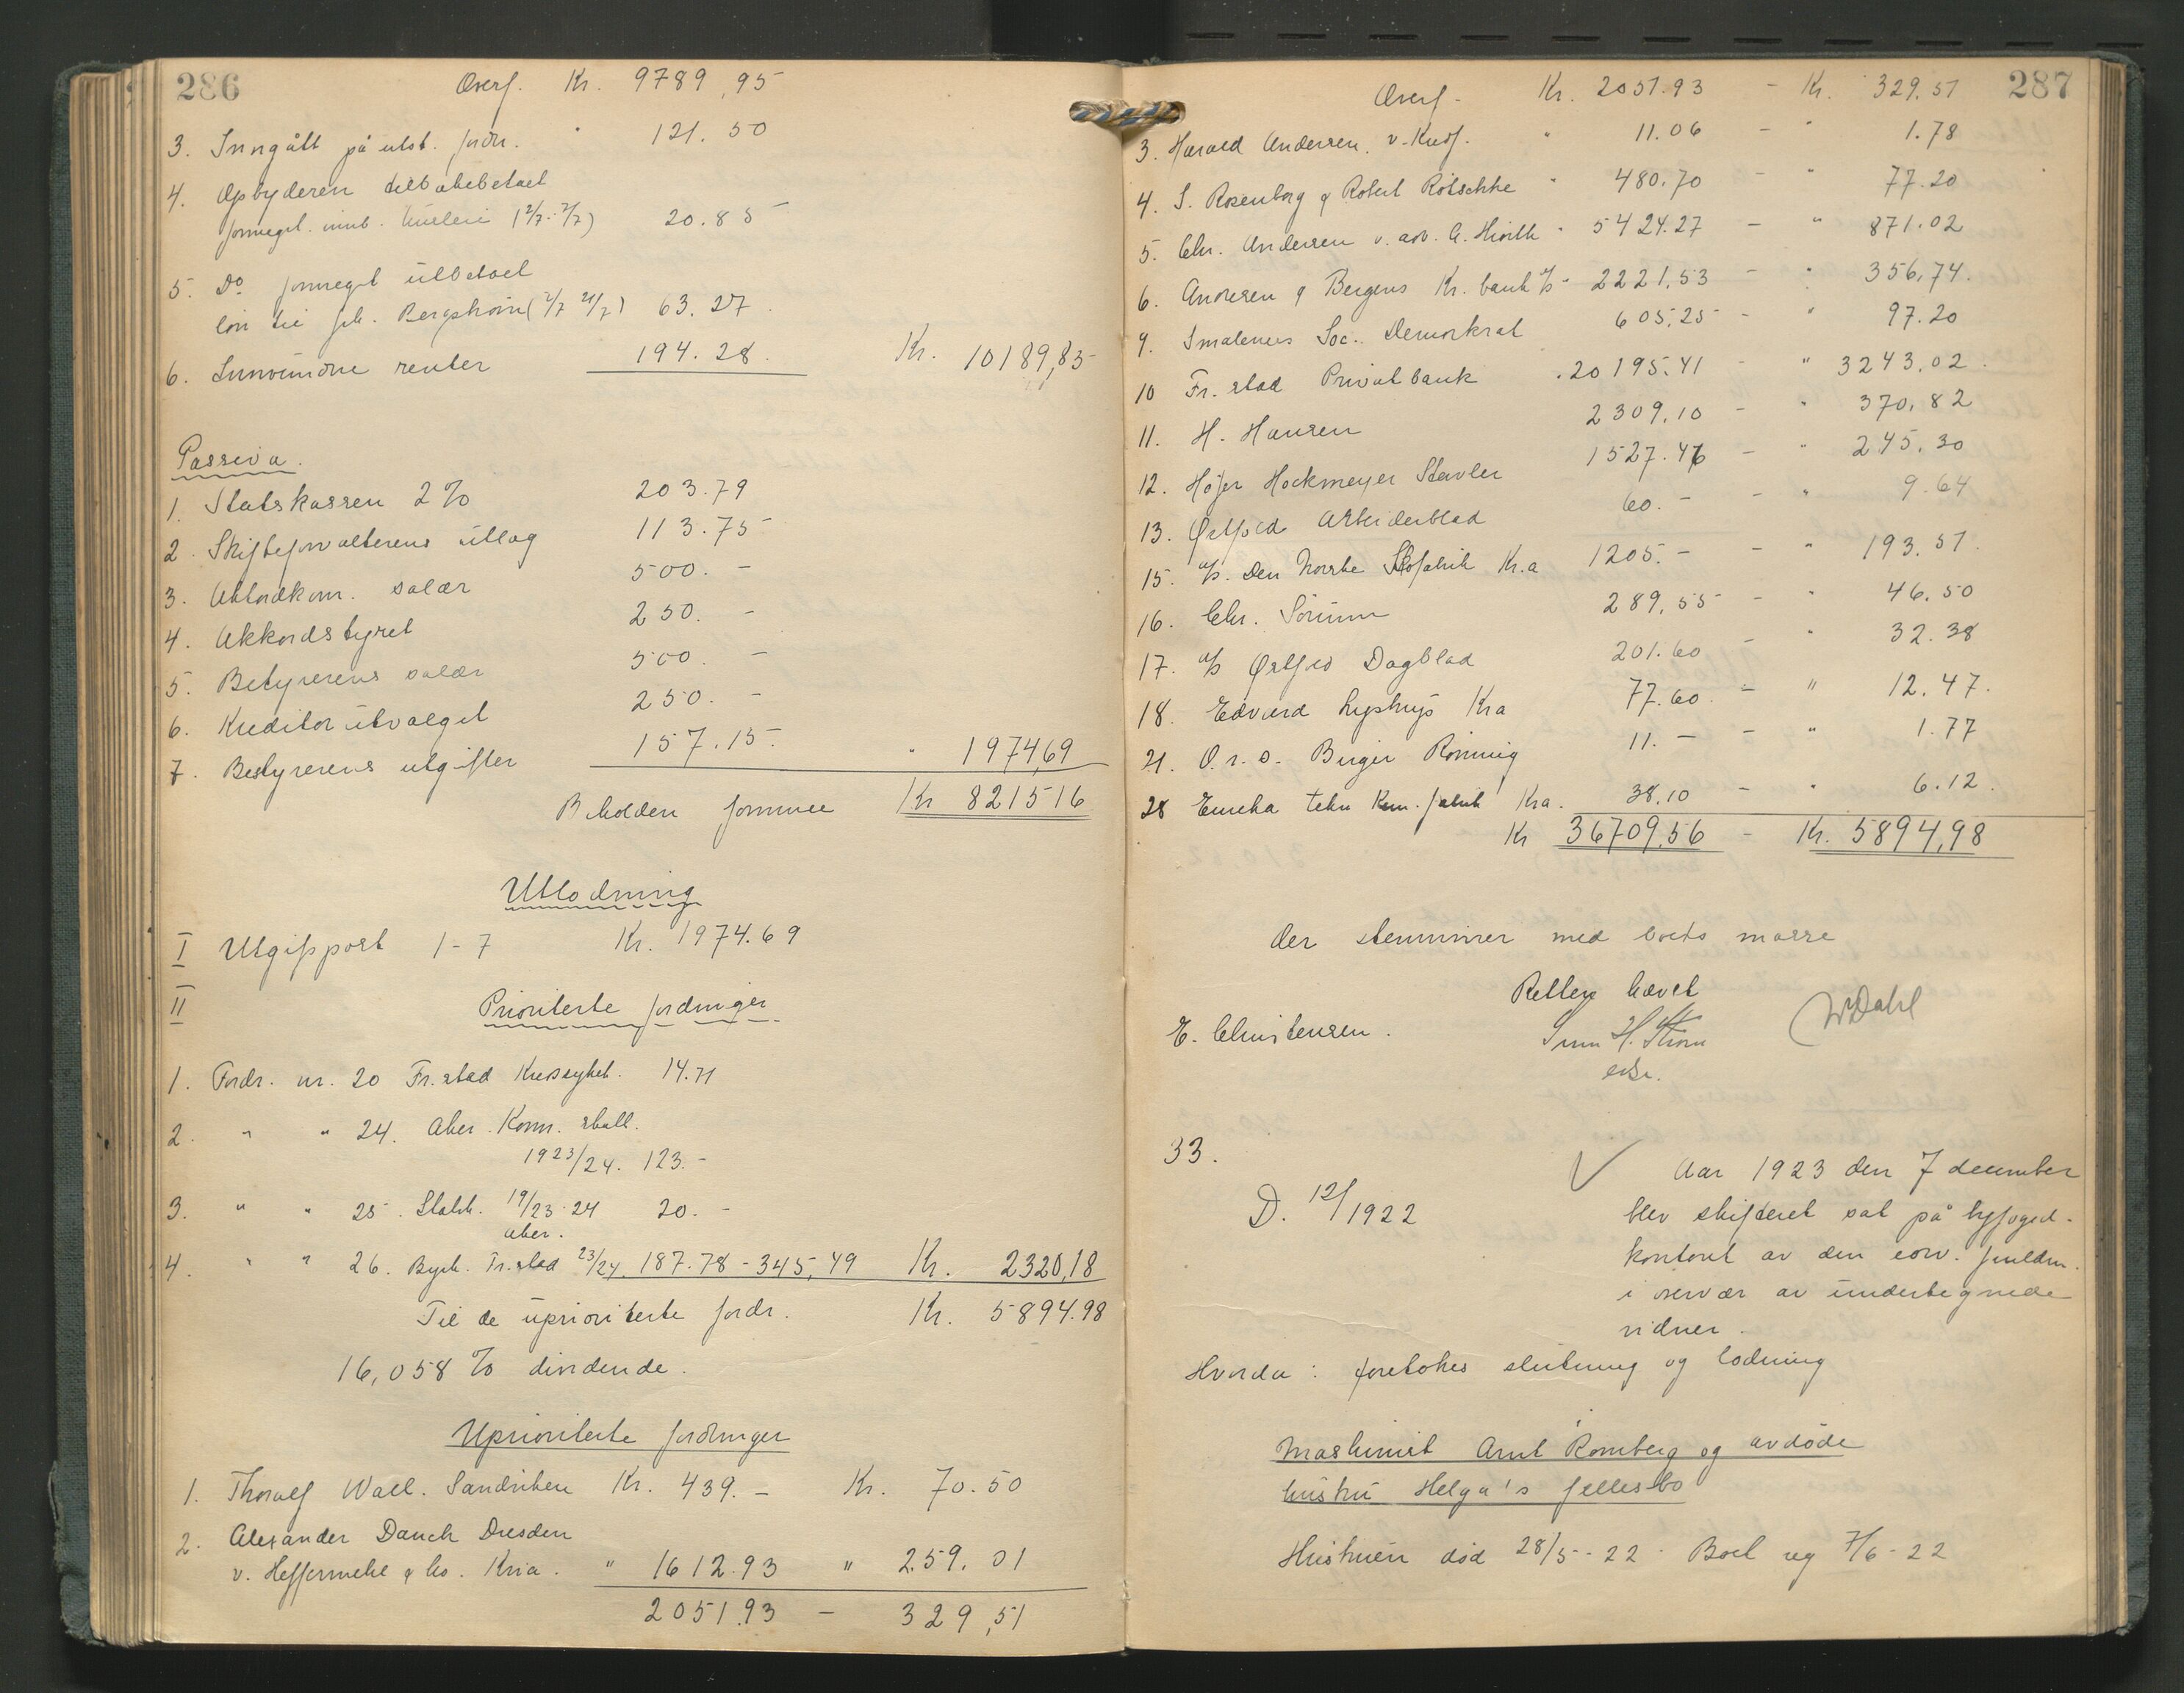 286
Overf. Kr. 9789,95
3. Inngått på utst. fordr. " 121.50
4. Opbyderen tilbakebetalt
formeget innb. husleie (2/7-7/7) 20.85
5. Do formeget utbetalt
lön til frk. Bergström (2/7 21/7) 63.27
6. Innvundne renter 194.28 Kr. 10189,85
Passiva.
1. Statskassen 2% 203.79
2. Skifteforvalterens utlæg 113.75
3. Akkordkom. salær 500.-
4. Akkordstyret 250.-
5. Bestyrerens salær 500.-
6. Kreditorutvalget 250.-
7. Bestyrerens utgifter 157.15 " 1974,69
Beholden formue Kr 8215 16
Utlodning
I Utgiftspost 1-7 Kr. 1974.69
II Prioriterte fordringer
1. Fordr. nr. 20 Fr.stad Kredssykek. 14.71
2. " " 24. Aker Komm. skatt.
1923/24. 123.-
3. " " 25. Statsk. 19/23-24 20.-
Aker.
4. " " 26. Bysk. Fr.stad 23/24. 187.78 - 345,49 Kr. 2320,18
Til de uprioriterte fordr. Kr. 5894.98
16,058 % dividende.
Uprioriterte fordringer
1. Thoralf Wall. Sandviken Kr. 439.- Kr. 70.50
2. Alexander Dauch Dresden
v. Heffermehl & Co. Kria. " 1612.93 " 259.01
2051.93 - 329,51
287
Overf. Kr. 2051.93 - Kr. 329.51
3. Harald Andersen. v. " 11.06 - " 1.78
4. S. Rosenberg & Robert Rötschke " 480.70 - " 77.20
5. Chr. Andersen v. adv. C. Hiorth " 5424.27 - " 871.02
6. Andresen & Bergens Kr. bank A/S " 2221,53 - " 356,74.
9. Smalenens Soc.. Demokrat 605,25 - " 97.20
10 Fr.stad Privatbank " 20195.41 - " 3243.02.
11. H. Hansen 2309,10 - " 370,82
12. Höfer Hockmeyer Stavler 1527.46 - " 245.30
13. Østfold Arbeiderblad 60.- - " 9.64
15. A/S. Den Norske Skofabrik Kr.a 1205.- - " 193.51.
16. Chr. Sörum 289,55 - " 46.50
17. A/S Østfold Dagblad 201.60 - " 32.38
18. Edvard Lyshuijs Kra 77.60. - " 12.47.
21. O.r.s. Birger Rönning 11.- - " 1.77
28 Eureka tekn Kem. fabrik Kra. 38,10 - " 6.12.
Kr 36709.56 - Kr. 5894,98
Der stemmer med boets masse
Retten hævet
E. Christensen. Sven H. Strøm W Dahl
edsv.
33.
D. 12/1922
Aar 1923 den 7 december
blev skifteret sat på byfoged-
kontoret av den edsv. fuldm.
i overvær av undertegnede
vidner.
Hvorda: foretokes slutning og lodning
Maskinist Arnt Romberg og avdöde
hustru Helga's fellesbo
Hustruen död 28/5-22. Boet reg 7/6-22